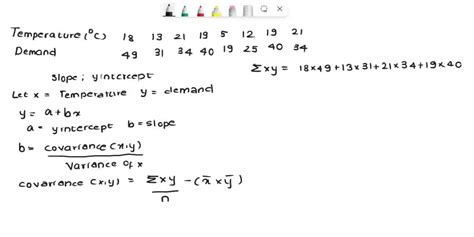 Temperature (°C) 18 13 21 19 5 12 19 21
Demand 49 31 34 40 19 25 40 34
Σxy = 18×49+13×31+21×34+19×40
slope ; yintercept
Let x = Temperature y = demand
y = a+bx
a = yintercept b = slope
b = covariance (x,y)
Variance of x
covariance (x,y) = Σxy - (x̄ × ȳ)
n